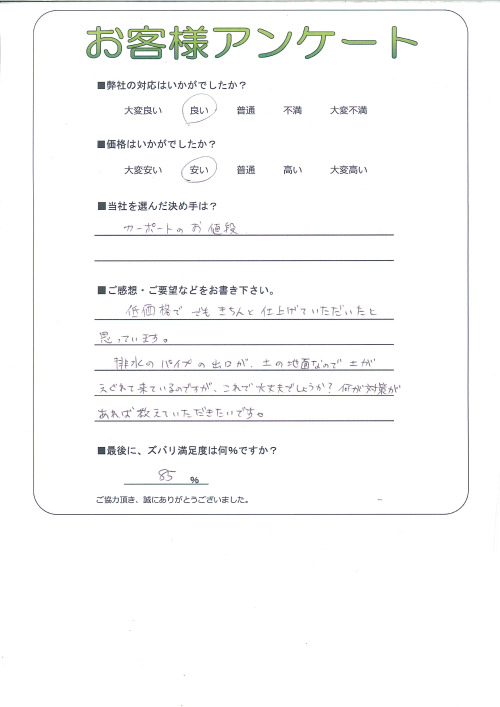 お客様アンケート
■弊社の対応はいかがでしたか？
大変良い 良い 普通 不満 大変不満
■価格はいかがでしたか？
大変安い 安い 普通 高い 大変高い
■当社を選んだ決め手は？
カーポートのお値段
■ご感想・ご要望などをお書き下さい。
低価格で でも きちんと仕上げていただいたと
思っています。
排水のパイプの出口が、土の地面なので土が
えぐれて来ているのですが、これで大丈夫でしょうか？何か対策が
あれば教えていただきたいです。
■最後に、ズバリ満足度は何％ですか？
85 %
ご協力頂き、誠にありがとうございました。